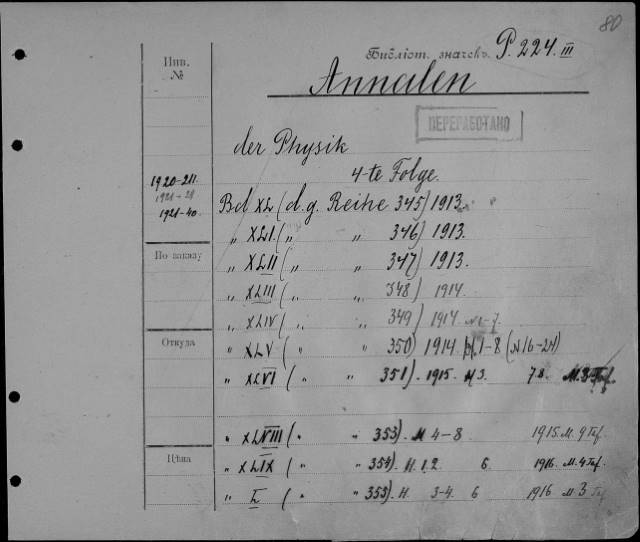 80
Библіот. значекъ P. 224. III
Инв. №
Annalen
ПЕРЕРАБОТАНО
der Physik
4-te Folge.
1920-211.
1921-21
1921-40.
Bd XL (d. g. Reihe 345) 1913.
„ XLI („ „ 346) 1913.
По заказу
„ XLII („ „ 347) 1913.
„ XLIII („ „ 348) 1914.
„ XLIV („ „ 349) 1914 N 1-7.
Откуда
„ XLV („ „ 350) 1914 N 1-8 (N 16-24)
„ XLVI („ „ 351). 1915. N 3. 7 8. M. 8 Taf.
„ XLVIII („ „ 353). N 4-8. 1915. M. 9 Taf.
Цѣна
„ XLIX („ „ 354). H. 1. 2. 6. 1916. M. 4 Taf.
„ L („ „ 353). H. 3-4. 6 1916 M 3 Taf